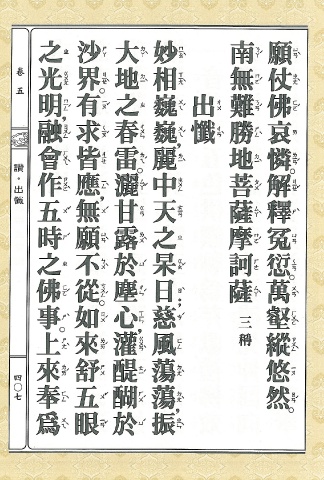 願仗佛哀憐。解釋冤愆。萬壑縱悠然。
南無難勝地菩薩摩訶薩 三稱
出懺
妙相巍巍，麗中天之杲日，慈風蕩蕩，振
大地之春雷。灑甘露於塵心，灌醍醐於
沙界。有求皆應，無願不從。如來舒五眼
之光明，融會作五時之佛事。上來奉為
卷五
讚·出懺
四〇七